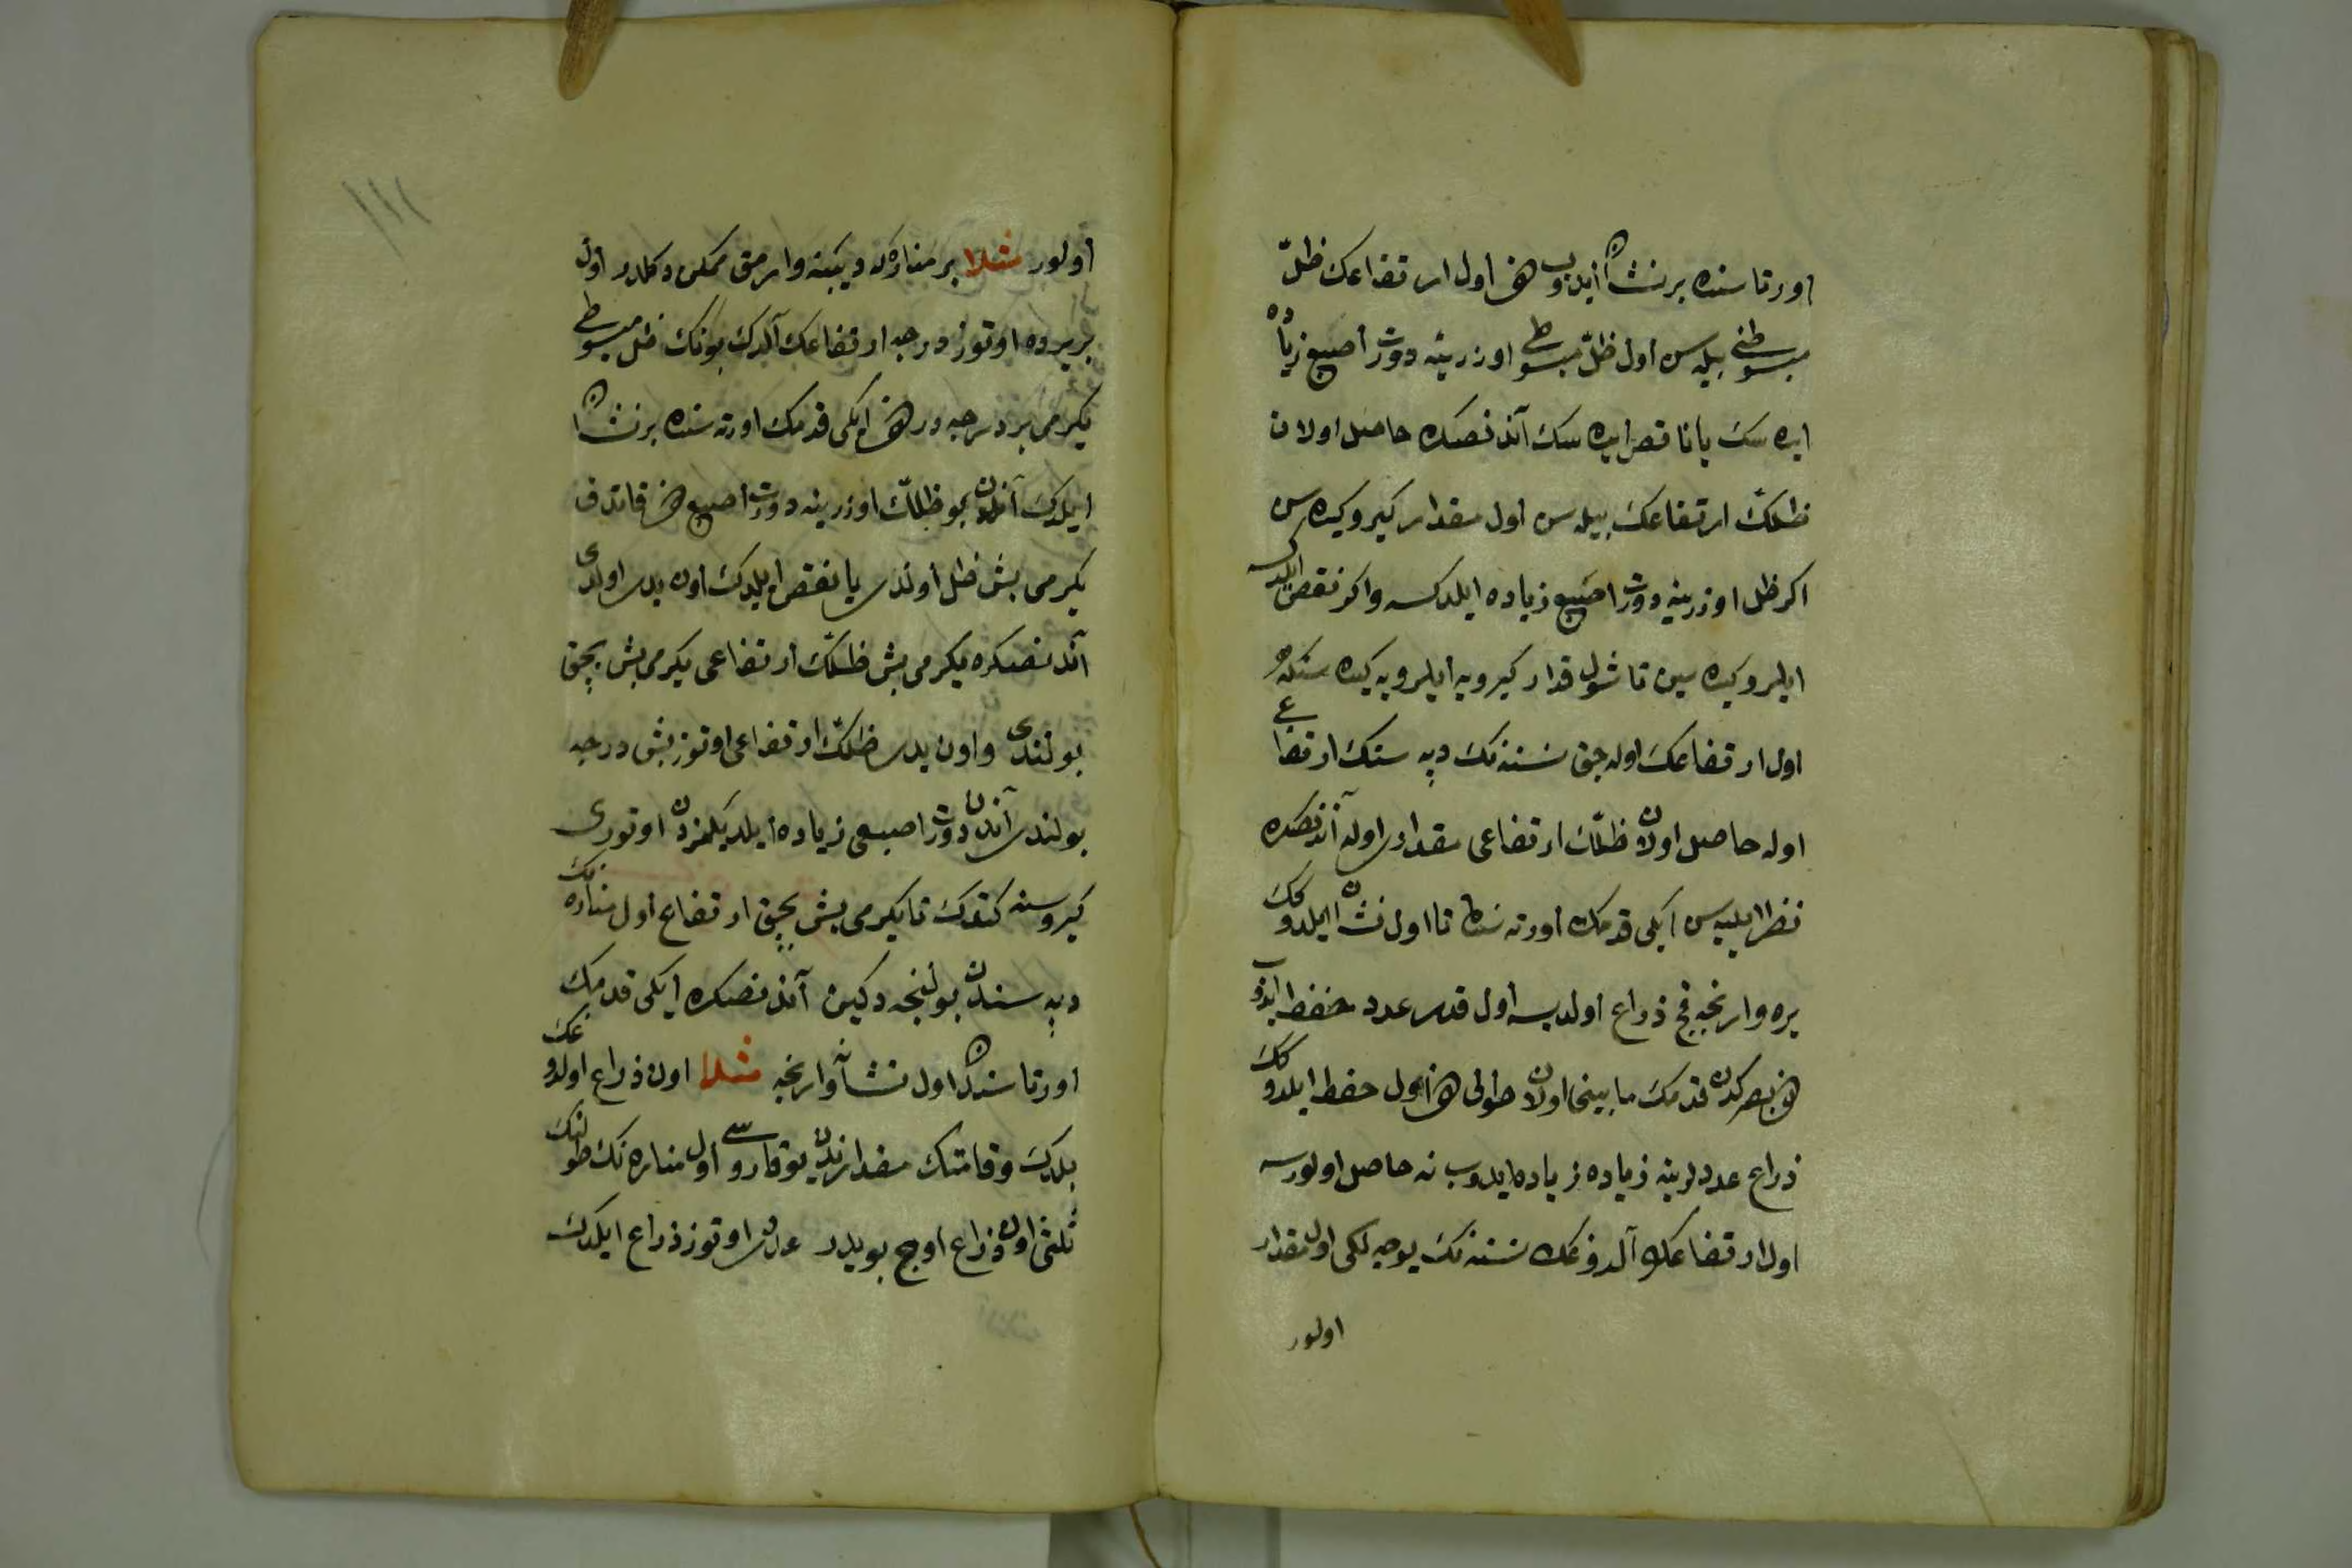 اورتاسنده بر نشان ایدوب هم اول ارتفاعك ظلّ
مبسوطنی بیله‌سن اول ظلّ مبسوط اوزرینه دورت اصبع زیاده
ایده‌سك یا ناقص ایده‌سك آندنصكره حاصل اولان
ظلك ارتفاعك بیله‌سن اول مقدار كیرو كیده‌سن
اكر ظل اوزرینه دورت اصبع زیاده ایلدكسه واكر نقص ایلدكسه
ایلرو كیده‌سین تا شول قدار كیرویه ایلرویه كیده‌سنكه
اول ارتفاعك اوله‌جق نسنه‌نك دپه‌سنك ارتفاع
اوله حاصل اولان ظلّك ارتفاعی مقداری اوله آندنصكره
نظر ایلیه‌سن ایكی قدمك اورته‌سنده تا اول نشان ایلدوكك
یره وارنجه قچ ذراع اولدیسه اول قدر عدد حفظ ایدوب
هم بصركدن قدمك مابینی اولان طولی هم اول حفظ ایلدوكك
ذراع عددلرینه زیاده زیاده ایدوب نه حاصل اولورسه
اول ارتفاعك آلدوغك نسنه‌نك یوجه‌لكی اول مقدار
اولور
١١١
اولور مثلا بر مناره‌كه دیبینه وارمق ممكن دكلدر اول
بر یرده اوتوز درجه ارتفاعك آلدك بونك ظل مبسوطی
یكرمی بر درجه‌در هم ایكی قدمك اورته‌سنده بر نشان
ایلدك آندن بو ظلّك اوزرینه دورت اصبع هم قاتدق
یكرمی بش ظل اولدی یا نقص ایلدك اون یدی اولدی
آندنصكره یكرمی بش ظلّك ارتفاعی یكرمی بش بچق
بولندی واون یدی ظلّك ارتفاعی اوتوز بش درجه
بولندی آندن دورت اصبعی زیاده ایلدیكمزدن اوتوری
كیروسنه كتدك تا یكرمی بش بچق ارتفاع اول مناره‌نك
دپه‌سندن بولنجه دكین آندنصكره ایكی قدمك
اورتاسندن اول نشانه وارنجه مثلا اون ذراع اولدوغك
بلدك وقامتك مقدارندن یوقاروسی اول مناره‌نك طولنك
ثلثی اون ذراع اوچ بویلدر عددی اوتوز ذراع ایلدك